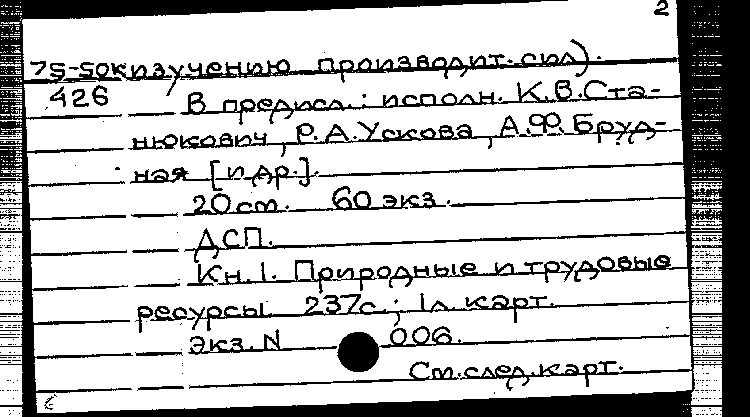 2
75-50к изучению производит. сил).
426 В предисл.: исполн. К.В.Ста-
нюкович, Р.А.Ускова, А.Ф.Бруд-
ная [и др.].
20 см. 60 экз.
ДСП.
Кн.1. Природные и трудовые
ресурсы. 237с.; 1л.карт.
Экз.N 006.
См.след.карт.